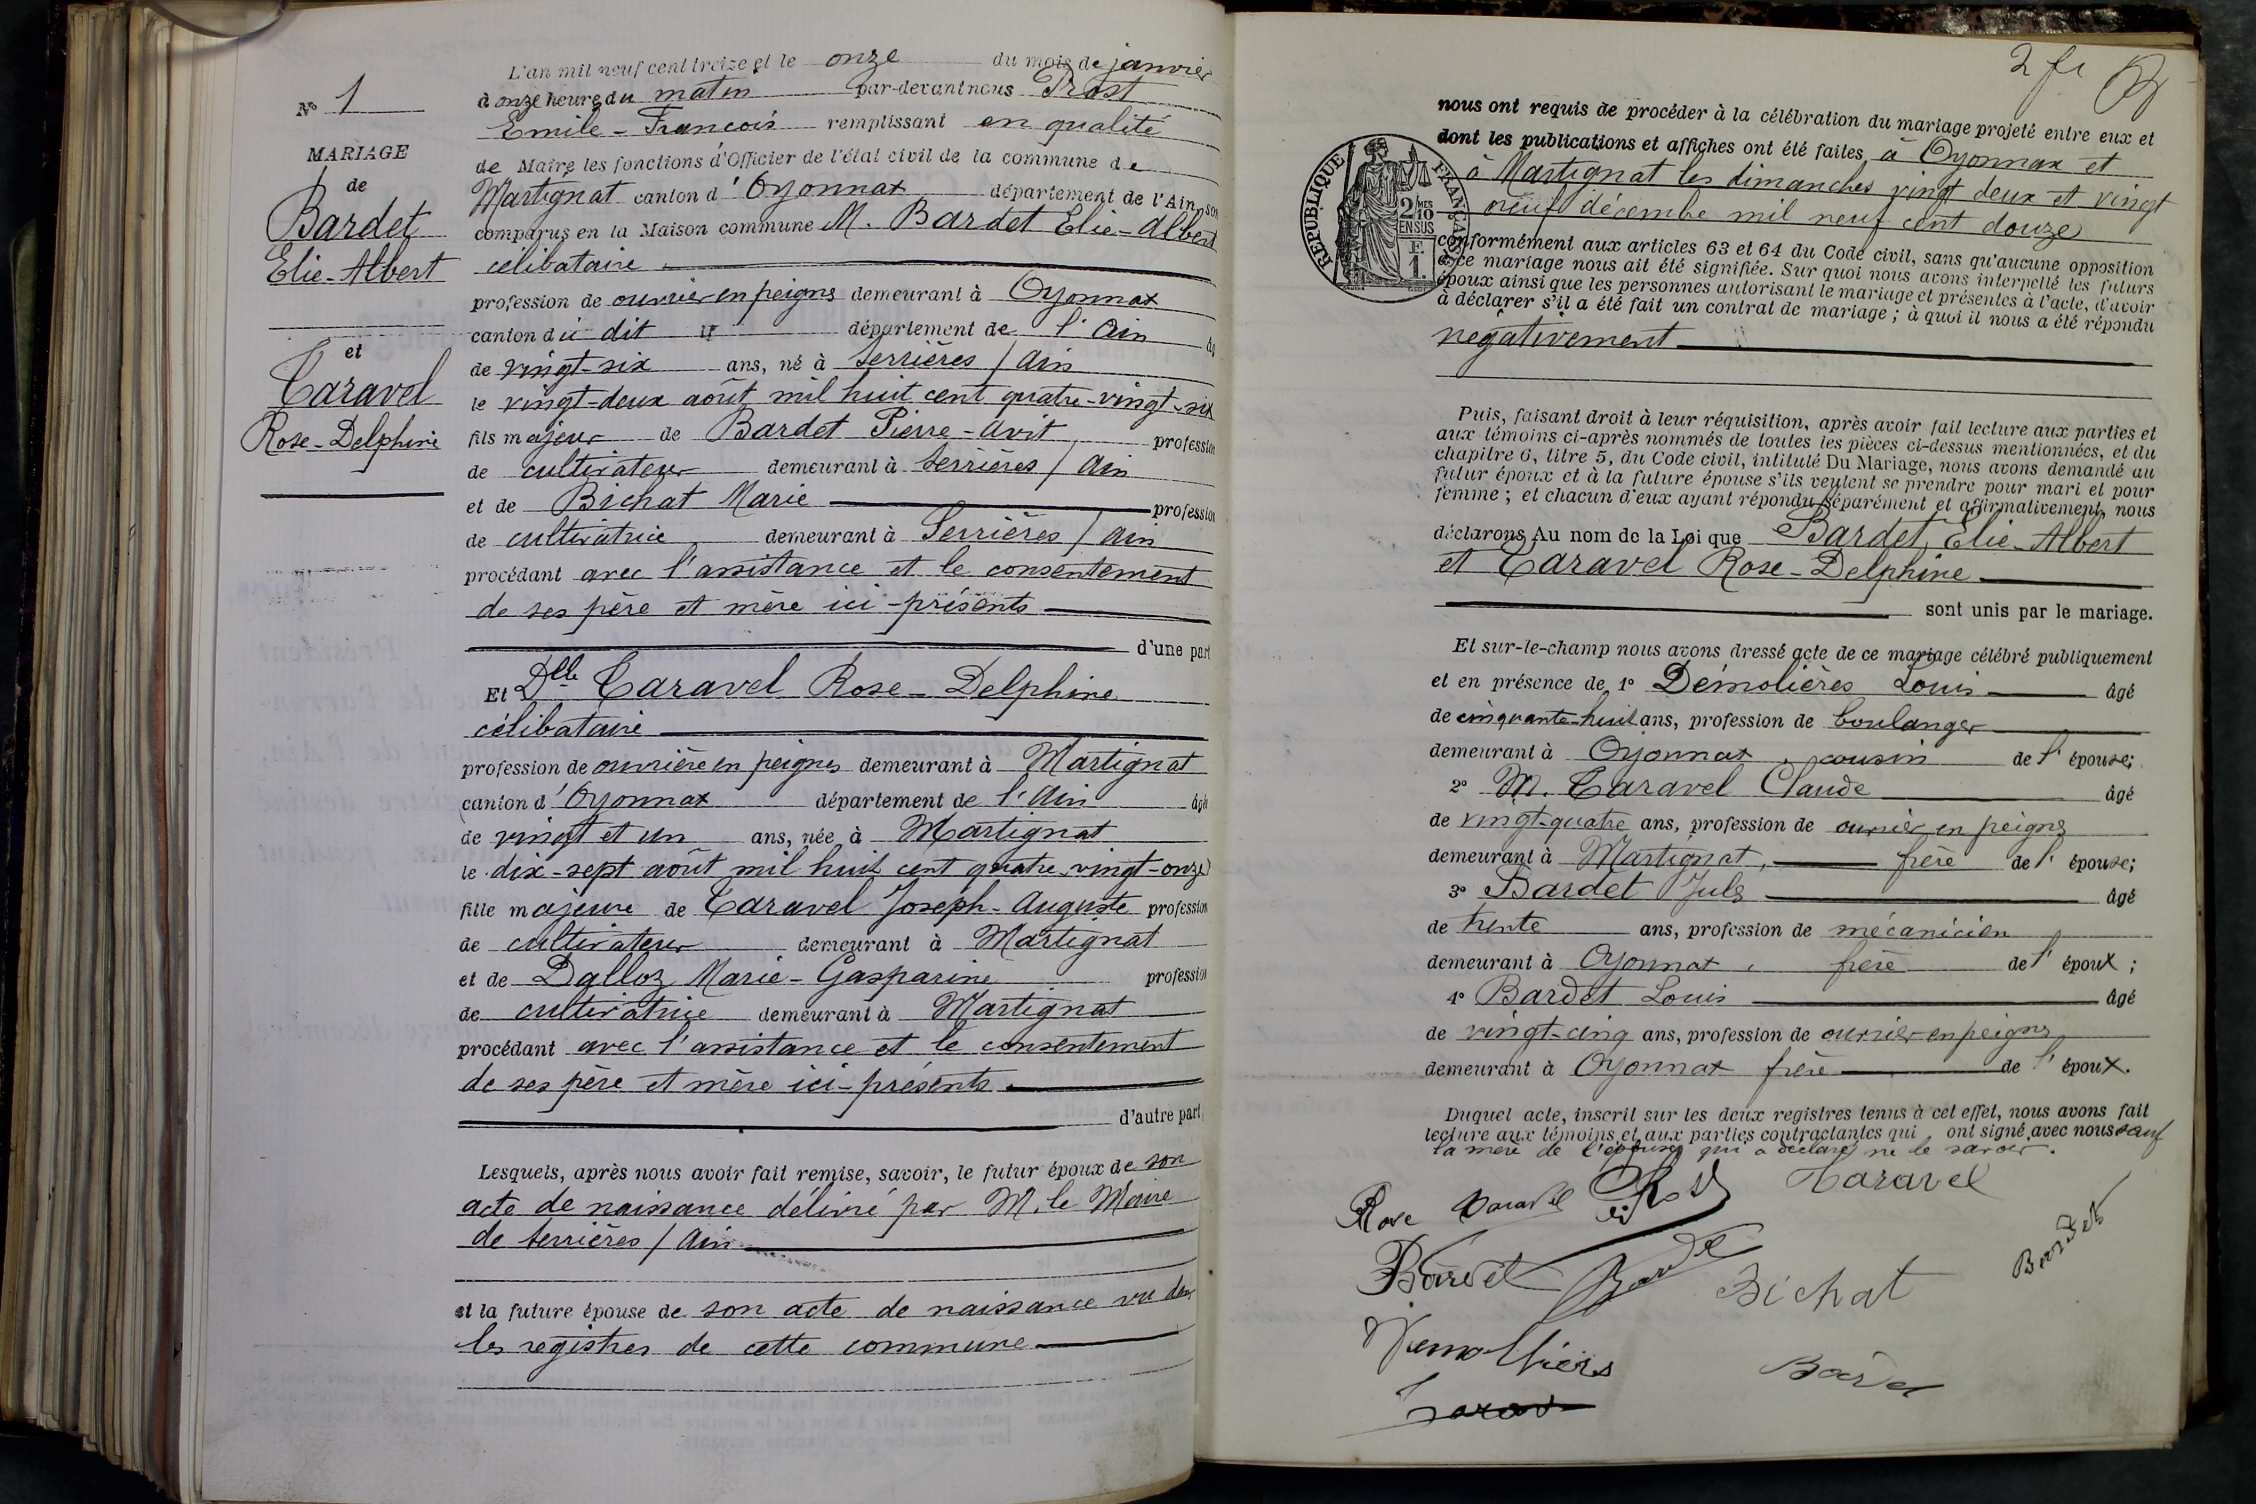 N° 1
MARIAGE
de
Bardet
Elie-Albert
et
Caravel
Rose-Delphine
L'an mil neuf cent treize et le onze du mois de janvier
à onze heures du matin par-devant nous Prost
Emile-François remplissant en qualité
de Maire les fonctions d'Officier de l'état civil de la commune de
Martignat canton d'Oyonnax département de l'Ain, sont
comparus en la Maison commune M. Bardet Elie-Albert
célibataire
profession de ouvrier en peignes demeurant à Oyonnax
canton du dit département de l'Ain âgé
de vingt-six ans, né à Serrières / Ain
le vingt-deux août mil huit cent quatre-vingt-six
fils majeur de Bardet Pierre-Avit profession
de cultivateur demeurant à Serrières / Ain
et de Bichat Marie profession
de cultivatrice demeurant à Serrières / Ain
procédant avec l'assistance et le consentement
de ses père et mère ici-présents
d'une part
Et Dlle Caravel Rose-Delphine
célibataire
profession de ouvrière en peignes demeurant à Martignat
canton d'Oyonnax département de l'Ain âgée
de vingt et un ans, née à Martignat
le dix-sept août mil huit cent quatre-vingt-onze
fille majeure de Caravel Joseph-Auguste profession
de cultivateur demeurant à Martignat
et de Dalloz Marie-Gasparine profession
de cultivatrice demeurant à Martignat
procédant avec l'assistance et le consentement
de ses père et mère ici-présents
d'autre part,
Lesquels, après nous avoir fait remise, savoir, le futur époux de son
acte de naissance délivré par M. le Maire
de Serrières / Ain
et la future épouse de son acte de naissance vu dans
les registres de cette commune
2 fr
nous ont requis de procéder à la célébration du mariage projeté entre eux et
dont les publications et affiches ont été faites, à Oyonnax et
à Martignat les dimanches vingt deux et vingt
neuf décembre mil neuf cent douze
RÉPUBLIQUE FRANÇAISE
2/10MES
EN SUS
F
1.
conformément aux articles 63 et 64 du Code civil, sans qu'aucune opposition
à ce mariage nous ait été signifiée. Sur quoi nous avons interpellé les futurs
époux ainsi que les personnes autorisant le mariage et présentes à l'acte, d'avoir
à déclarer s'il a été fait un contrat de mariage ; à quoi il nous a été répondu
négativement
Puis, faisant droit à leur réquisition, après avoir fait lecture aux parties et
aux témoins ci-après nommés de toutes les pièces ci-dessus mentionnées, et du
chapitre 6, titre 5, du Code civil, intitulé Du Mariage, nous avons demandé au
futur époux et à la future épouse s'ils veulent se prendre pour mari et pour
femme ; et chacun d'eux ayant répondu séparément et affirmativement, nous
déclarons, Au nom de la Loi que Bardet Elie-Albert
et Caravel Rose-Delphine
sont unis par le mariage.
Et sur-le-champ nous avons dressé acte de ce mariage célébré publiquement
et en présence de 1° Démolières Louis âgé
de cinquante-huit ans, profession de boulanger
demeurant à Oyonnax, cousin de l'épouse;
2° M. Caravel Claude âgé
de vingt-quatre ans, profession de ouvrier en peignes
demeurant à Martignat, frère de l'épouse;
3° Bardet Jules âgé
de trente ans, profession de mécanicien
demeurant à Oyonnax, frère de l'époux ;
4° Bardet Louis âgé
de vingt-cinq ans, profession de ouvrier en peignes
demeurant à Oyonnax frère de l'époux.
Duquel acte, inscrit sur les deux registres tenus à cet effet, nous avons fait
lecture aux témoins et aux parties contractantes qui ont signé avec nous sauf
la mère de l'épouse qui a déclaré ne le savoir.
Rose Caravel Caravel
Bardet Bardet Bichat Bardet
Demolières Bardet